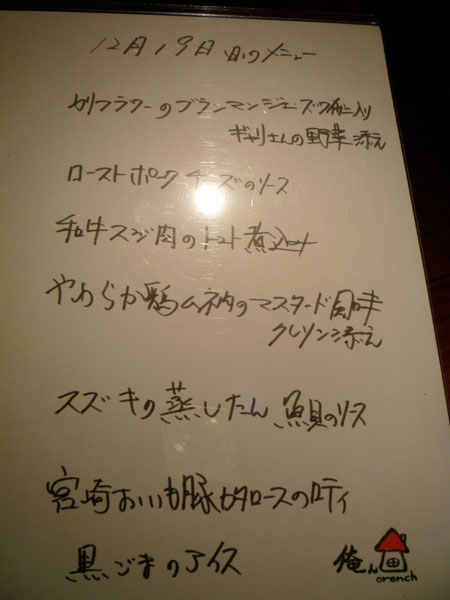 12月19日 夜のメニュー
カリフラワーのブランマンジェ ズワイ蟹入り
ギャリさんの野菜添え
ローストポーク チーズのソース
和牛スジ肉のトマト煮込み
やわらか鶏ムネ肉のマスタード風味
クレソン添え
スズキの蒸したん 魚貝のソース
宮崎おいも豚カタロースのロティ
黒ごまのアイス
俺ん
orench